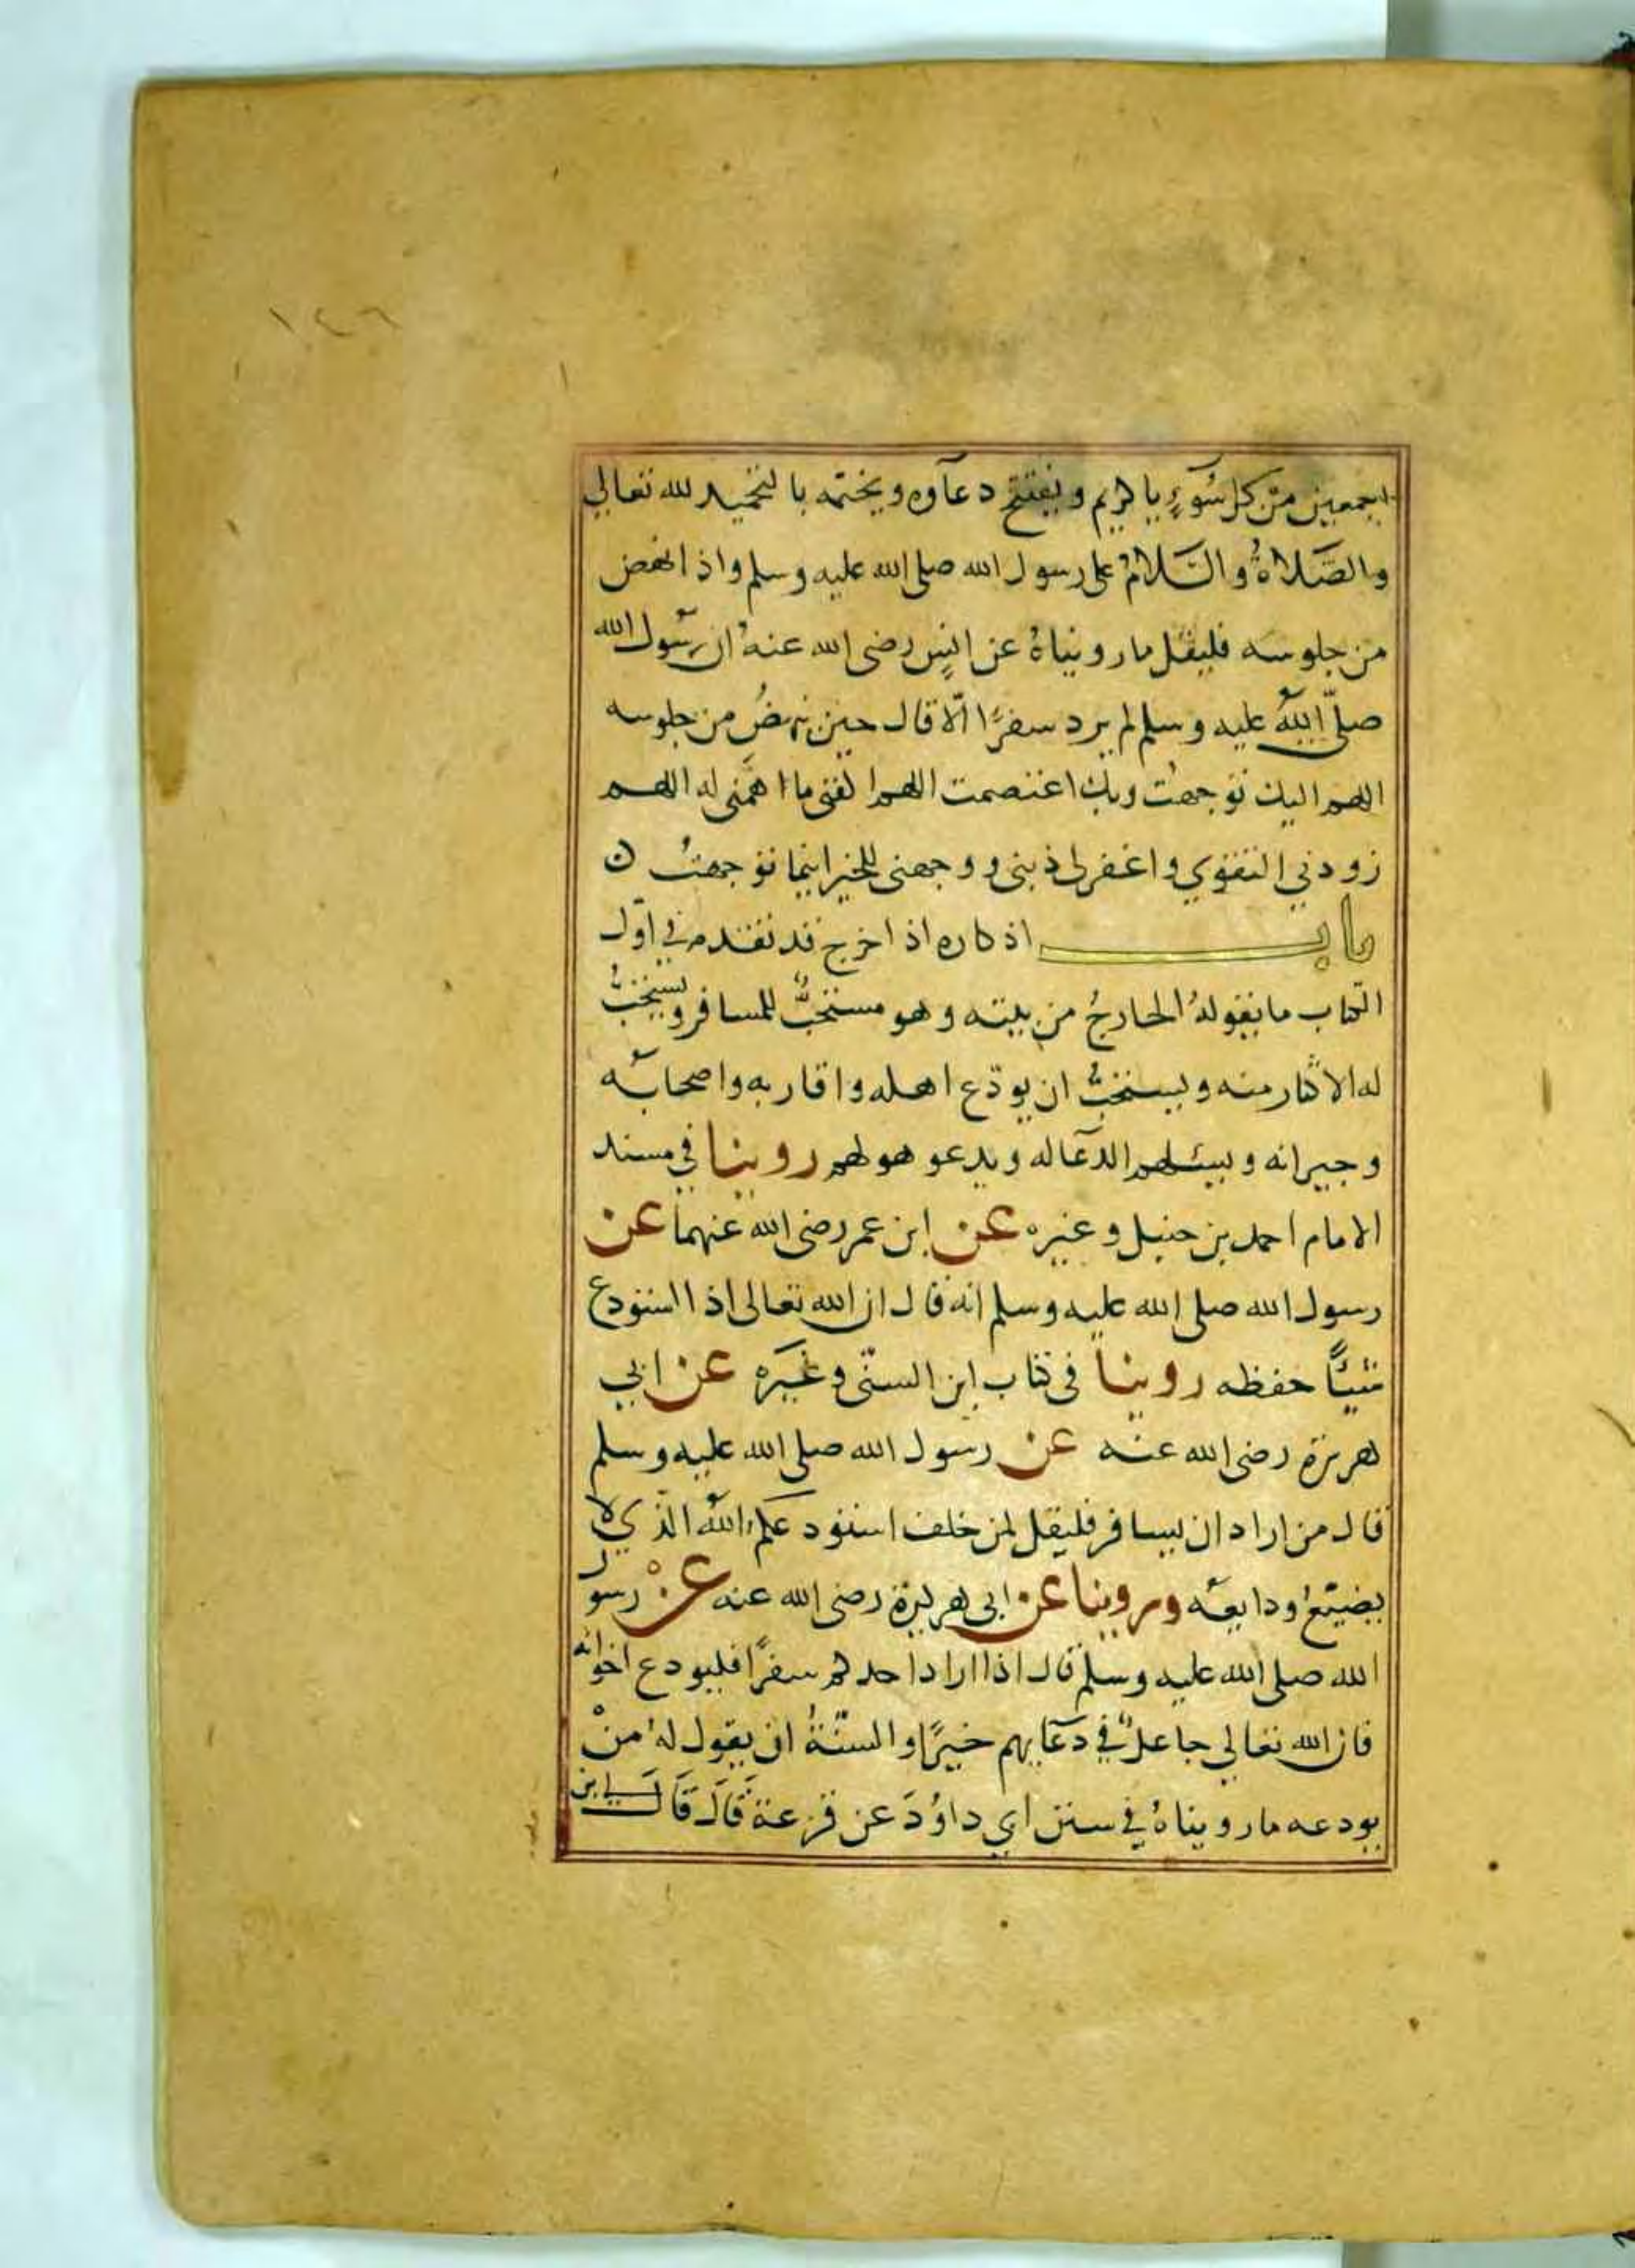 ١٢٦
اجمعين من كل سُوءٍ يا كريم ويفتتح دعآوه ويختمه بالتحميد لله تعالي
والصَّلاةُ والسَّلامُ على رسول الله صلى الله عليه وسلم واذا نهض
من جلوسه فليقل ما رويناهُ عن انسٍ رضى الله عنهُ ان رسُول الله
صلّى اللهُ عليه وسلم لم يرد سفرًا الّا قال حين نهضُ من جلوسه
اللهم اليك توجهت وبك اعتصمت اللهم اكفنى ما اهمَّنى له اللهم
زودني التقوي واغفر لى ذنبى ووجهنى للخير اينما توجهتُ ن
باب اذكاره اذا خرج قد تقدم في اوّل
الكتاب ما يقولهُ الخارجُ من بيته وهو مستحبٌّ للمسافر ويستحبُّ
له الاكثار منه ويستحبُّ ان يودّع اهله واقاربه واصحابه
وجيرانه ويسئلهم الدعا له ويدعو هو لهم روينا في مسند
الامام احمد بن حنبل وغيره عن ابن عمر رضى الله عنهما عن
رسول الله صلى الله عليه وسلم انه قال ان الله تعالى اذا استودع
شيئًا حفظه روينا فى كتاب ابن السنّى وغيره عن ابي
هريرة رضى الله عنه عن رسول الله صلى الله عليه وسلم
قال من اراد ان يسافر فليقل لمن خلف استودعكم الله الذي لا
يضيّع ودايعه وروينا عن ابى هريرة رضى الله عنه عنْ رسول
الله صلى الله عليه وسلم قال اذا اراد احدكم سفرًا فليودع اخوانه
فان الله تعالي جاعلٌ في دعآيهم خيرًا والسنّةُ ان يقول لهُ منْ
يودعه ما رويناهُ في سنن ابي داوُدَ عن قزعة قَالَ قَالَ لي ابن